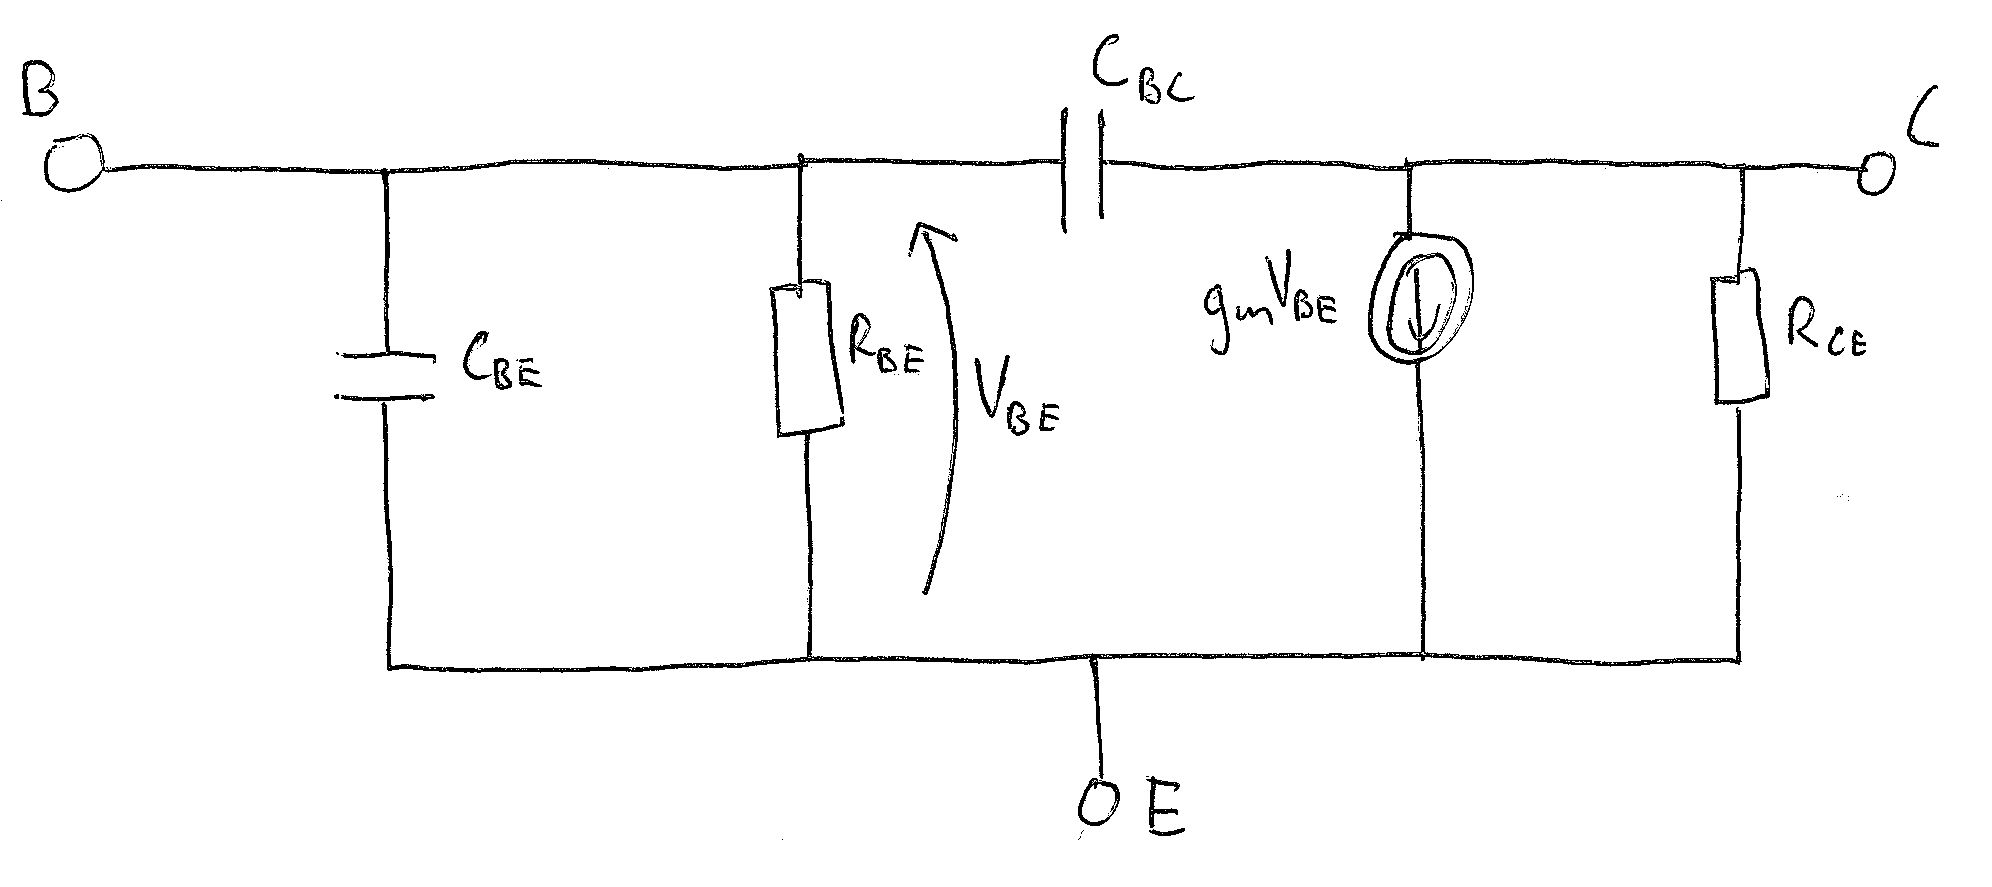 B
C_BC
C
C_BE
R_BE
V_BE
gmV_BE
R_CE
E